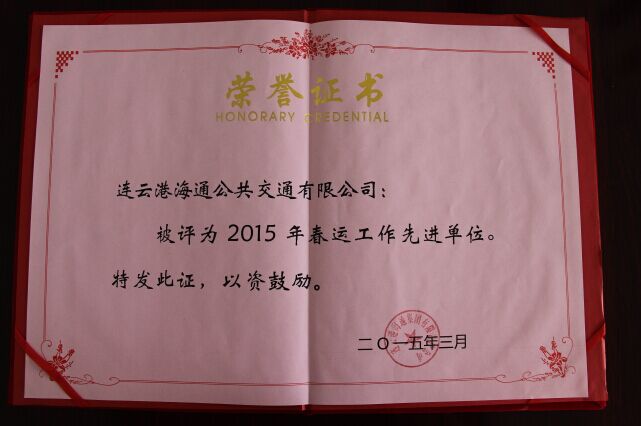 荣誉证书
HONORARY CREDENTIAL
连云港海通公共交通有限公司：
被评为 2015 年春运工作先进单位。
特发此证，以资鼓励。
二〇一五年三月